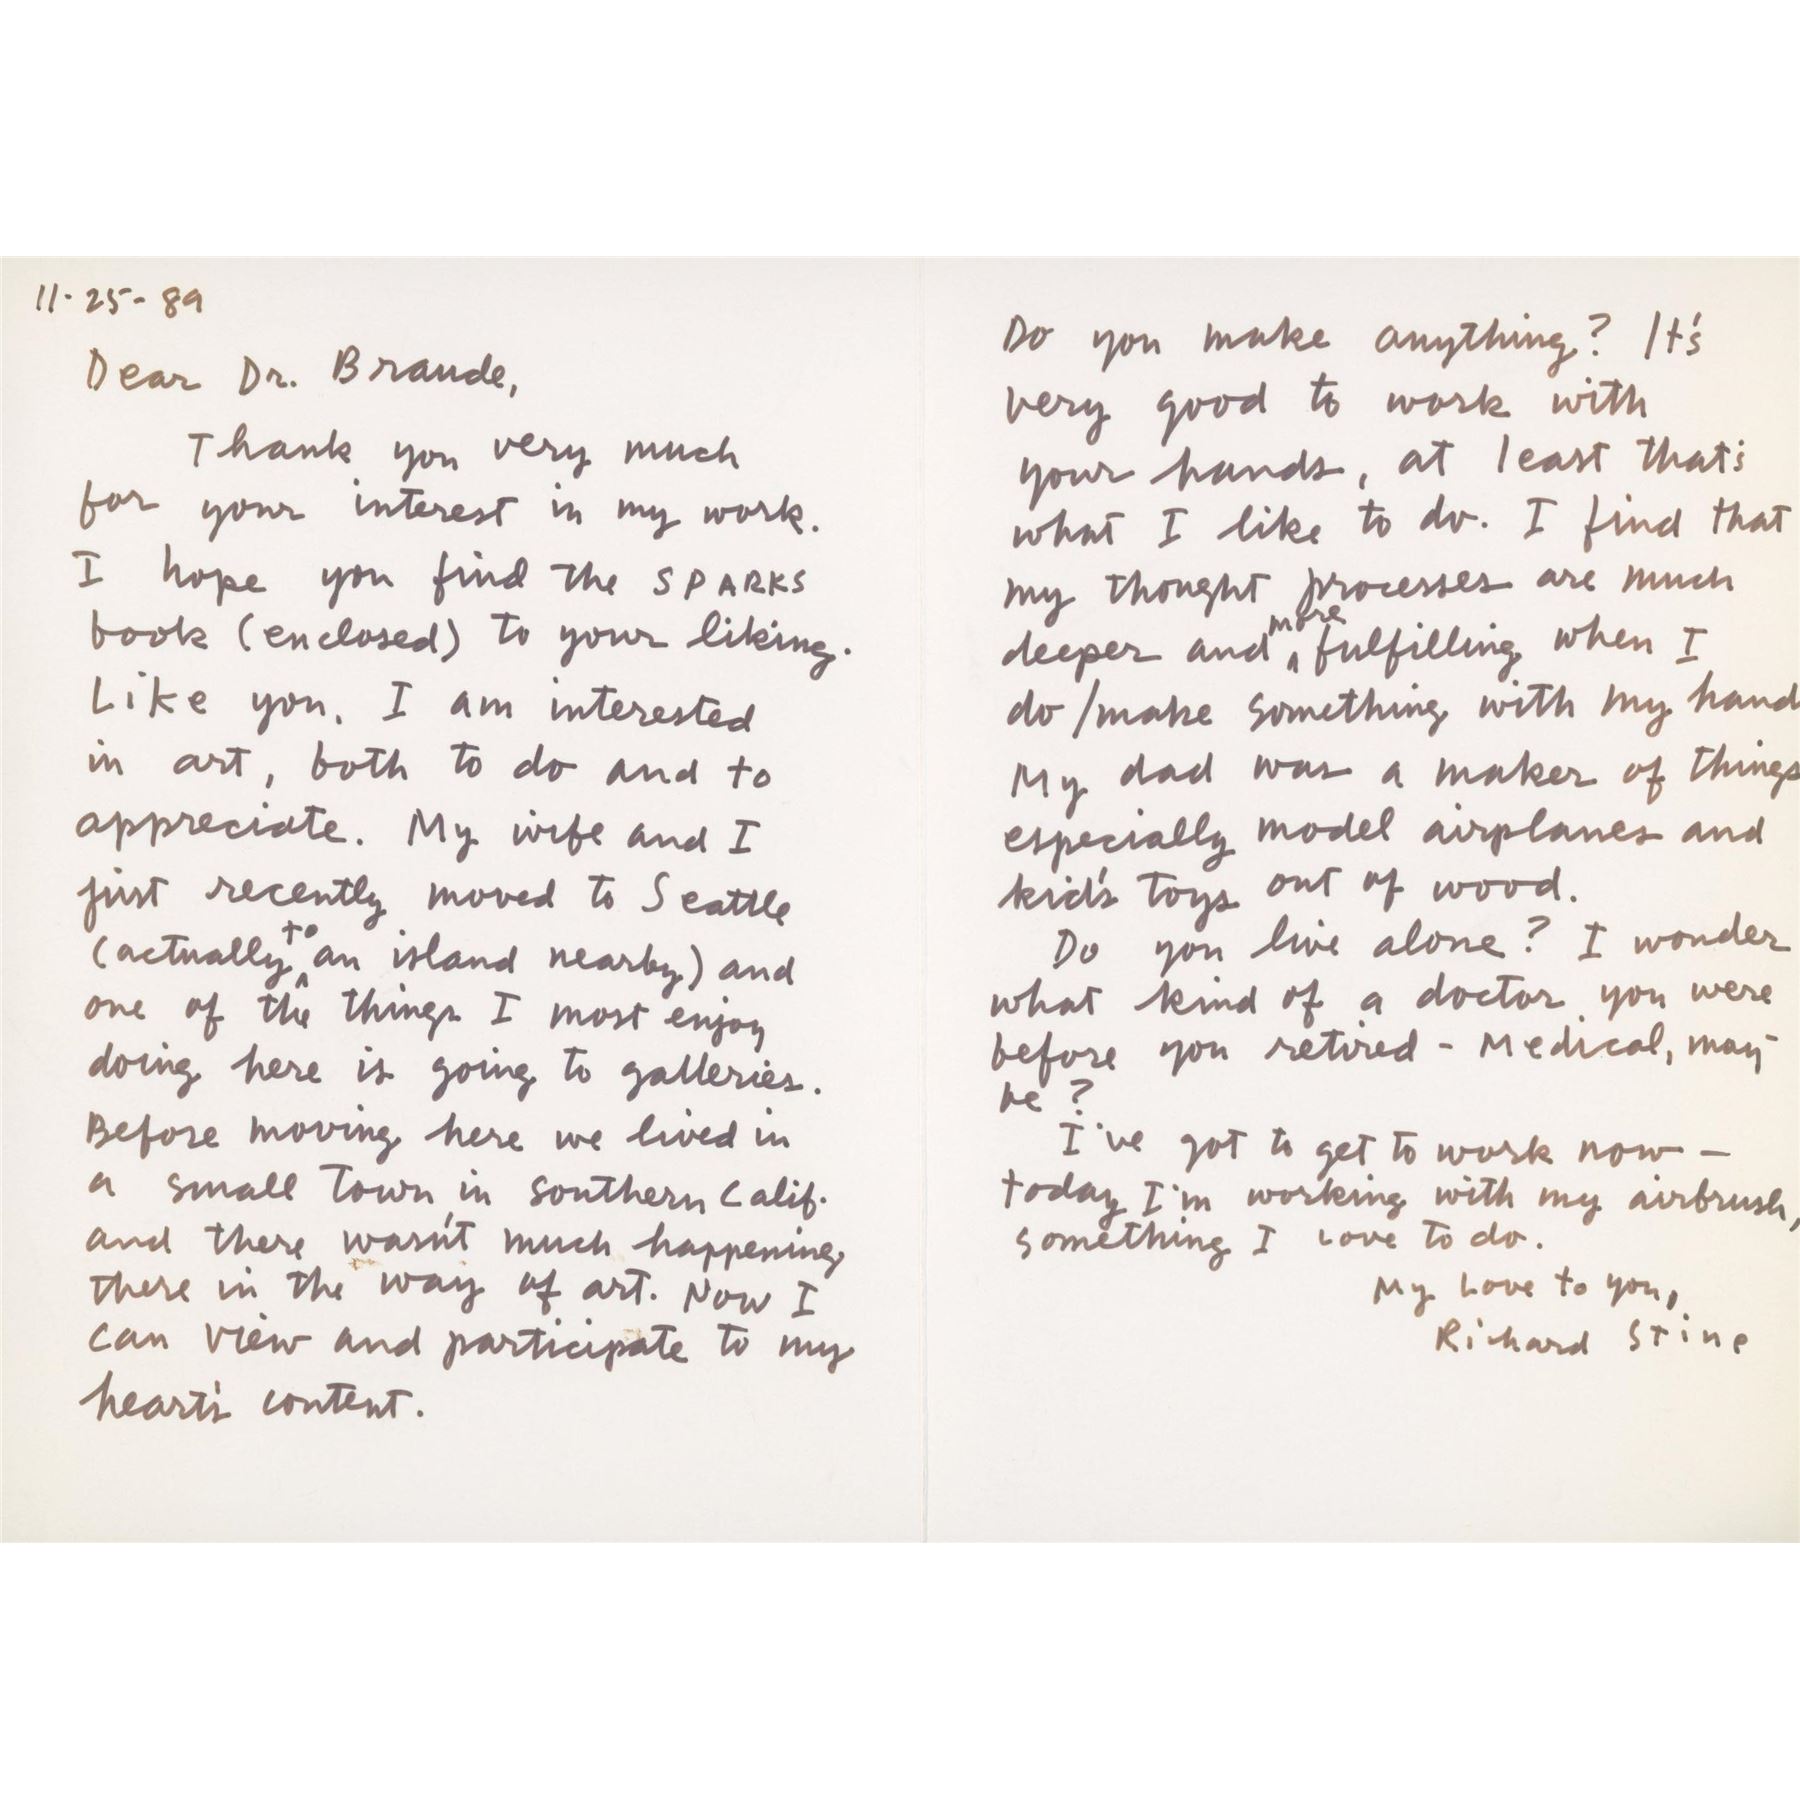 11-25-89
Dear Dr. Braude,
Thank you very much
for your interest in my work.
I hope you find the SPARKS
book (enclosed) to your liking.
Like you, I am interested
in art, both to do and to
appreciate. My wife and I
just recently moved to Seattle
(actually to an island nearby) and
one of the things I most enjoy
doing here is going to galleries.
Before moving here we lived in
a small town in southern Calif.
and there wasn't much happening
there in the way of art. Now I
can view and participate to my
heart's content.
Do you make anything? It's
very good to work with
your hands, at least that's
what I like to do. I find that
my thought processes are much
deeper and more fulfilling when I
do/make something with my hand
My dad was a maker of things
especially model airplanes and
kid's toys out of wood.
Do you live alone? I wonder
what kind of a doctor you were
before you retired - Medical, may
be?
I've got to get to work now -
today I'm working with my airbrush,
something I love to do.
My Love to you,
Richard Stine